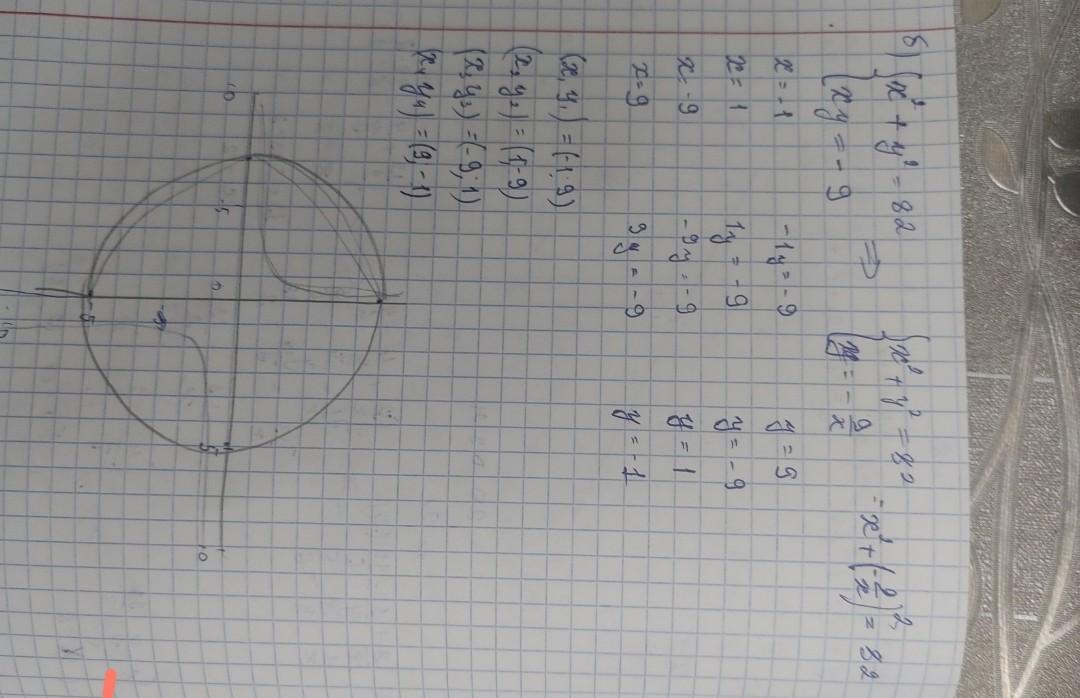 б) { x² + y² = 82 ⇒ { x² + y² = 82 = x² + (-9/x)² = 82
{ xy = -9 { y = - 9/x
x = -1 -1y = -9 y = 9
x = 1 1y = -9 y = -9
x = -9 -9y = -9 y = 1
x = 9 9y = -9 y = -1
(x, y₁) = (-1; 9)
(x₂ y₂) = (1; -9)
(x₃ y₃) = (-9; 1)
(x₄ y₄) = (9; -1)
10
5
0
-5
5
10